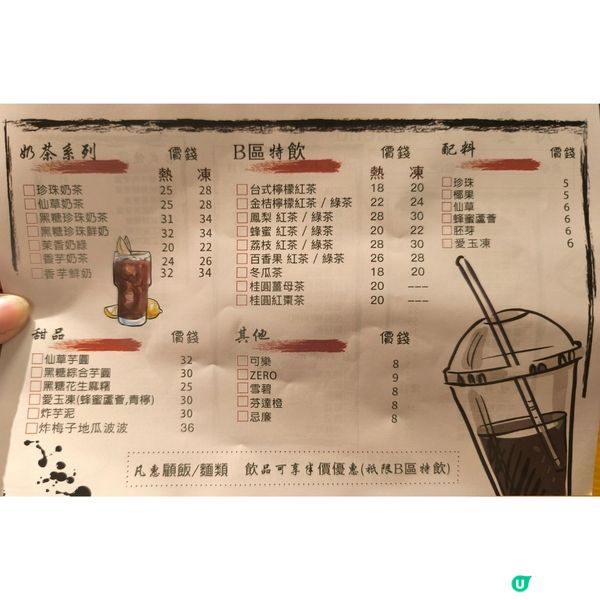 奶茶系列 價錢
熱 凍
珍珠奶茶 25 28
仙草奶茶 25 28
黑糖珍珠奶茶 31 34
黑糖珍珠鮮奶 32 34
茉香奶綠 20 22
香芋奶茶 24 26
香芋鮮奶 32 34
B區特飲 價錢
熱 凍
台式檸檬紅茶 18 20
金桔檸檬紅茶 / 綠茶 22 24
鳳梨 紅茶 / 綠茶 28 30
蜂蜜 紅茶 / 綠茶 20 22
荔枝 紅茶 / 綠茶 28 30
百香果 紅茶 / 綠茶 26 28
冬瓜茶 18 20
桂圓薑母茶 20 ---
桂圓紅棗茶 20 ---
配料 價錢
珍珠 5
椰果 5
仙草 6
蜂蜜蘆薈 6
胚芽 6
愛玉凍 6
甜品 價錢
仙草芋圓 32
黑糖綜合芋圓 30
黑糖花生麻糬 25
愛玉凍(蜂蜜蘆薈,青檸) 30
炸芋泥 30
炸梅子地瓜波波 36
其他 價錢
可樂 8
ZERO 9
雪碧 8
芬達橙 8
忌廉 8
凡惠顧飯/麵類 飲品可享半價優惠(祇限B區特飲)
U